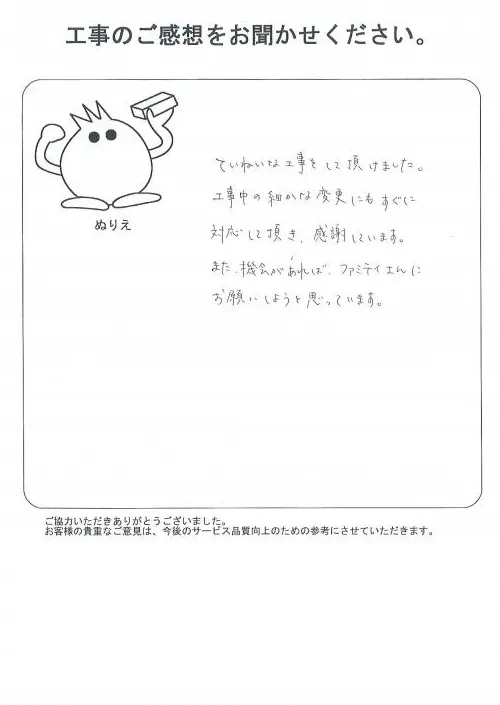 工事のご感想をお聞かせください。
ぬりえ
ていねいな工事をして頂けました。
工事中の細かな変更にもすぐに
対応して頂き、感謝しています。
また、機会があれば、ファミティさんに
お願いしようと思っています。
ご協力いただきありがとうございました。
お客様の貴重なご意見は、今後のサービス品質向上のための参考にさせていただきます。